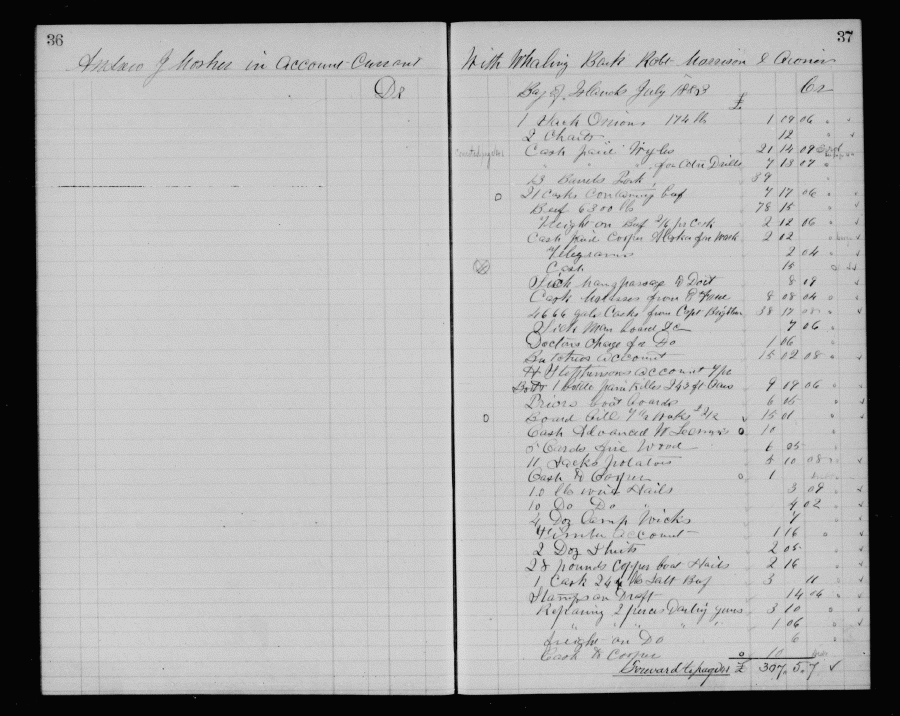 36
in Account Current
Dr
37
With Whaling Bark Robt Morrison &
Bay of Islands July 1883
Cr
£
1 Sack Onions 174 lb 1 09 06
2 Charts 12
Cash paid Wyles 21 14 09
" " for Cotn Drills 7 13 07
13 Barrels Pork 39
21 Casks Containing beef 7 17 06
Beef 6300 lb 78 15
Freight on Beef 2/6 pr Cask 2 12 06
Cash paid Cooper for Work 2 02
Telegrams 2 04
Cash 10
Sick Mans passage to Doct 8 09
Cask Molasses from 8 08 04
4666 galls Casks from Capt 38 17 08
Sick Man board &c 7 06
Doctors Charge for Do 1 06
Butchers account 15 02 08
H Stephensons account
1 bottle painkiller 243 ft 9 19 06
Priors boat boards 6 15
Board bill 7 1/2 Weeks 15 01
Cash Advanced 10
5 Cords fire Wood 6 05
11 Sacks potatoes 4 10 08
Cash to Cooper 1
10 lb wire Nails 3 09
10 Do Do 4 02
4 Doz Lamp Wicks 7
Timber account 1 16
2 Doz Shirts 2 05
28 pounds Copper boat Nails 2 16
1 Cask 244 lb Salt Beef 3 11
Stamps on Draft 14 04
Repairing 2 pieces Darling guns 3 10
" " " " 1 06
freight on Do 6
Cash to Cooper 10
Forward to page £ 307. 5. 7